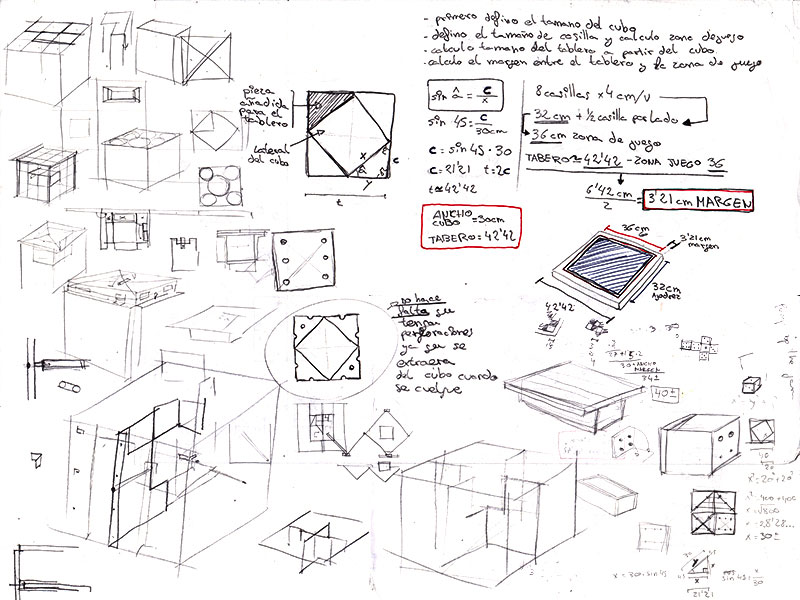 - primero defino el tamaño del cubo
- defino el tamaño de casilla y calculo zona de juego
- calculo tamaño del tablero a partir del cubo.
- calculo el margen entre el tablero y la zona de juego
pieza
añadida
para el
tablero
Lateral
del cubo
x
c
y
t
sin â = c/x
sin 45 = c/30cm
c = sin 45 · 30
c = 21'21 t = 2c
t = 42'42
ANCHO
CUBO = 30cm
TABERO = 42'42
8 casillas x 4 cm/u
32 cm + 1/2 casilla por lado
36 cm zona de juego
TABERO = 42'42 - ZONA JUEGO 36
6'42 cm / 2 = 3'21 cm MARGEN
36cm
3'21cm
margen
32cm
Ajedrez
42'42
no hace
falta que
tenga
perforaciones
ya que se
extraera
del cubo cuando
se cuelgue
40±
40
20
x² = 20² + 20²
x = √800
x = 28'28...
x = 30±
x = 30 · sin 45
sin 45 = x/30
21'21